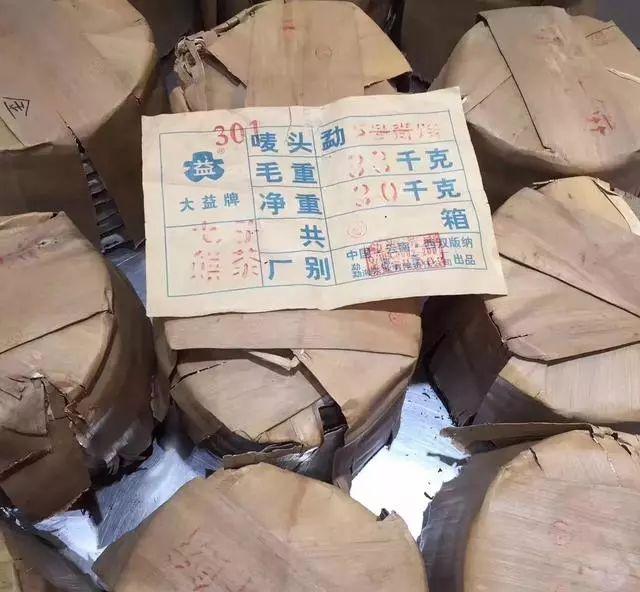 301 唛头 勐
益 毛重 33千克
大益牌 净重 30千克
七子 共 箱
茶 厂别 中国 云南 西双版纳
出品